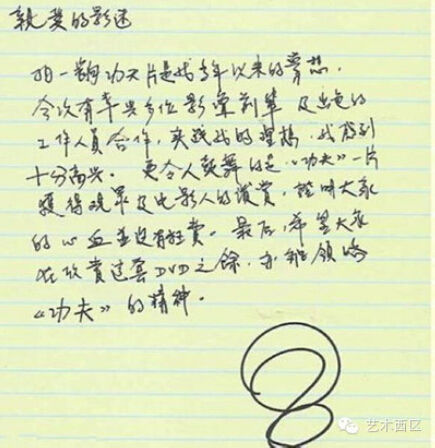 親愛的影迷
拍一齣功夫片是我多年以來的夢想,
今次有幸与多位影壇前輩及出色的
工作人員合作,实践我的理想,我感到
十分高兴. 更令人鼓舞的是,《功夫》一片
獲得观眾及电影人的讚賞,証明大家
的心血並沒有枉費。最后,希望大家
在欣賞这套DVD之餘,亦能領略
《功夫》的精神。
艺术西区